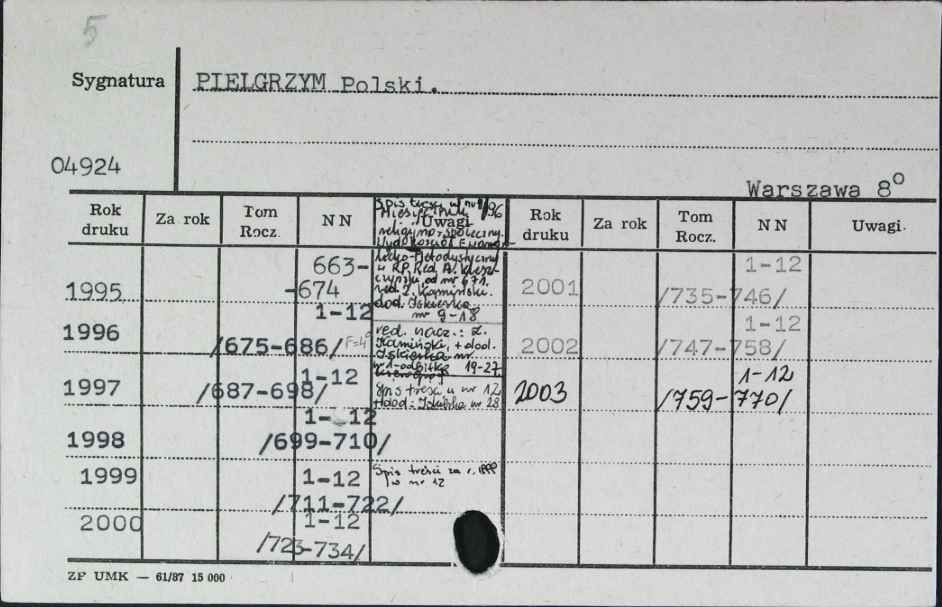 5
Sygnatura PIELGRZYM Polski.
04924
Warszawa 8°
Rok druku Za rok Tom Rocz. NN Uwagi Rok druku Za rok Tom Rocz. NN Uwagi.
Spis treści w nr 1/96
Miesięcznik
religijno-społeczny.
Wyd. Kościół Ewange-
licko-Metodystyczny
w RP. Red. A.
od nr 671.
red. Z. Kamiński.
dod. Iskierka
nr 9-18
1995 663-
-674
1996 1-12
/675-686/ F=4°
red. nacz.: Z.
Kamiński, + dod.
Iskierka nr
nr 1-odbitka 19-27
1997 1-12
/687-698/
Spis treści w nr 12
+dod: Iskierka nr 28
1998 1-12
/699-710/
1999 1-12
/711-722/
Spis treści za r. 1999
w nr 12
2000 1-12
/723-734/
2001 1-12
/735-746/
2002 1-12
/747-758/
2003 1-12
/759-770/
ZP UMK — 61/87 15 000